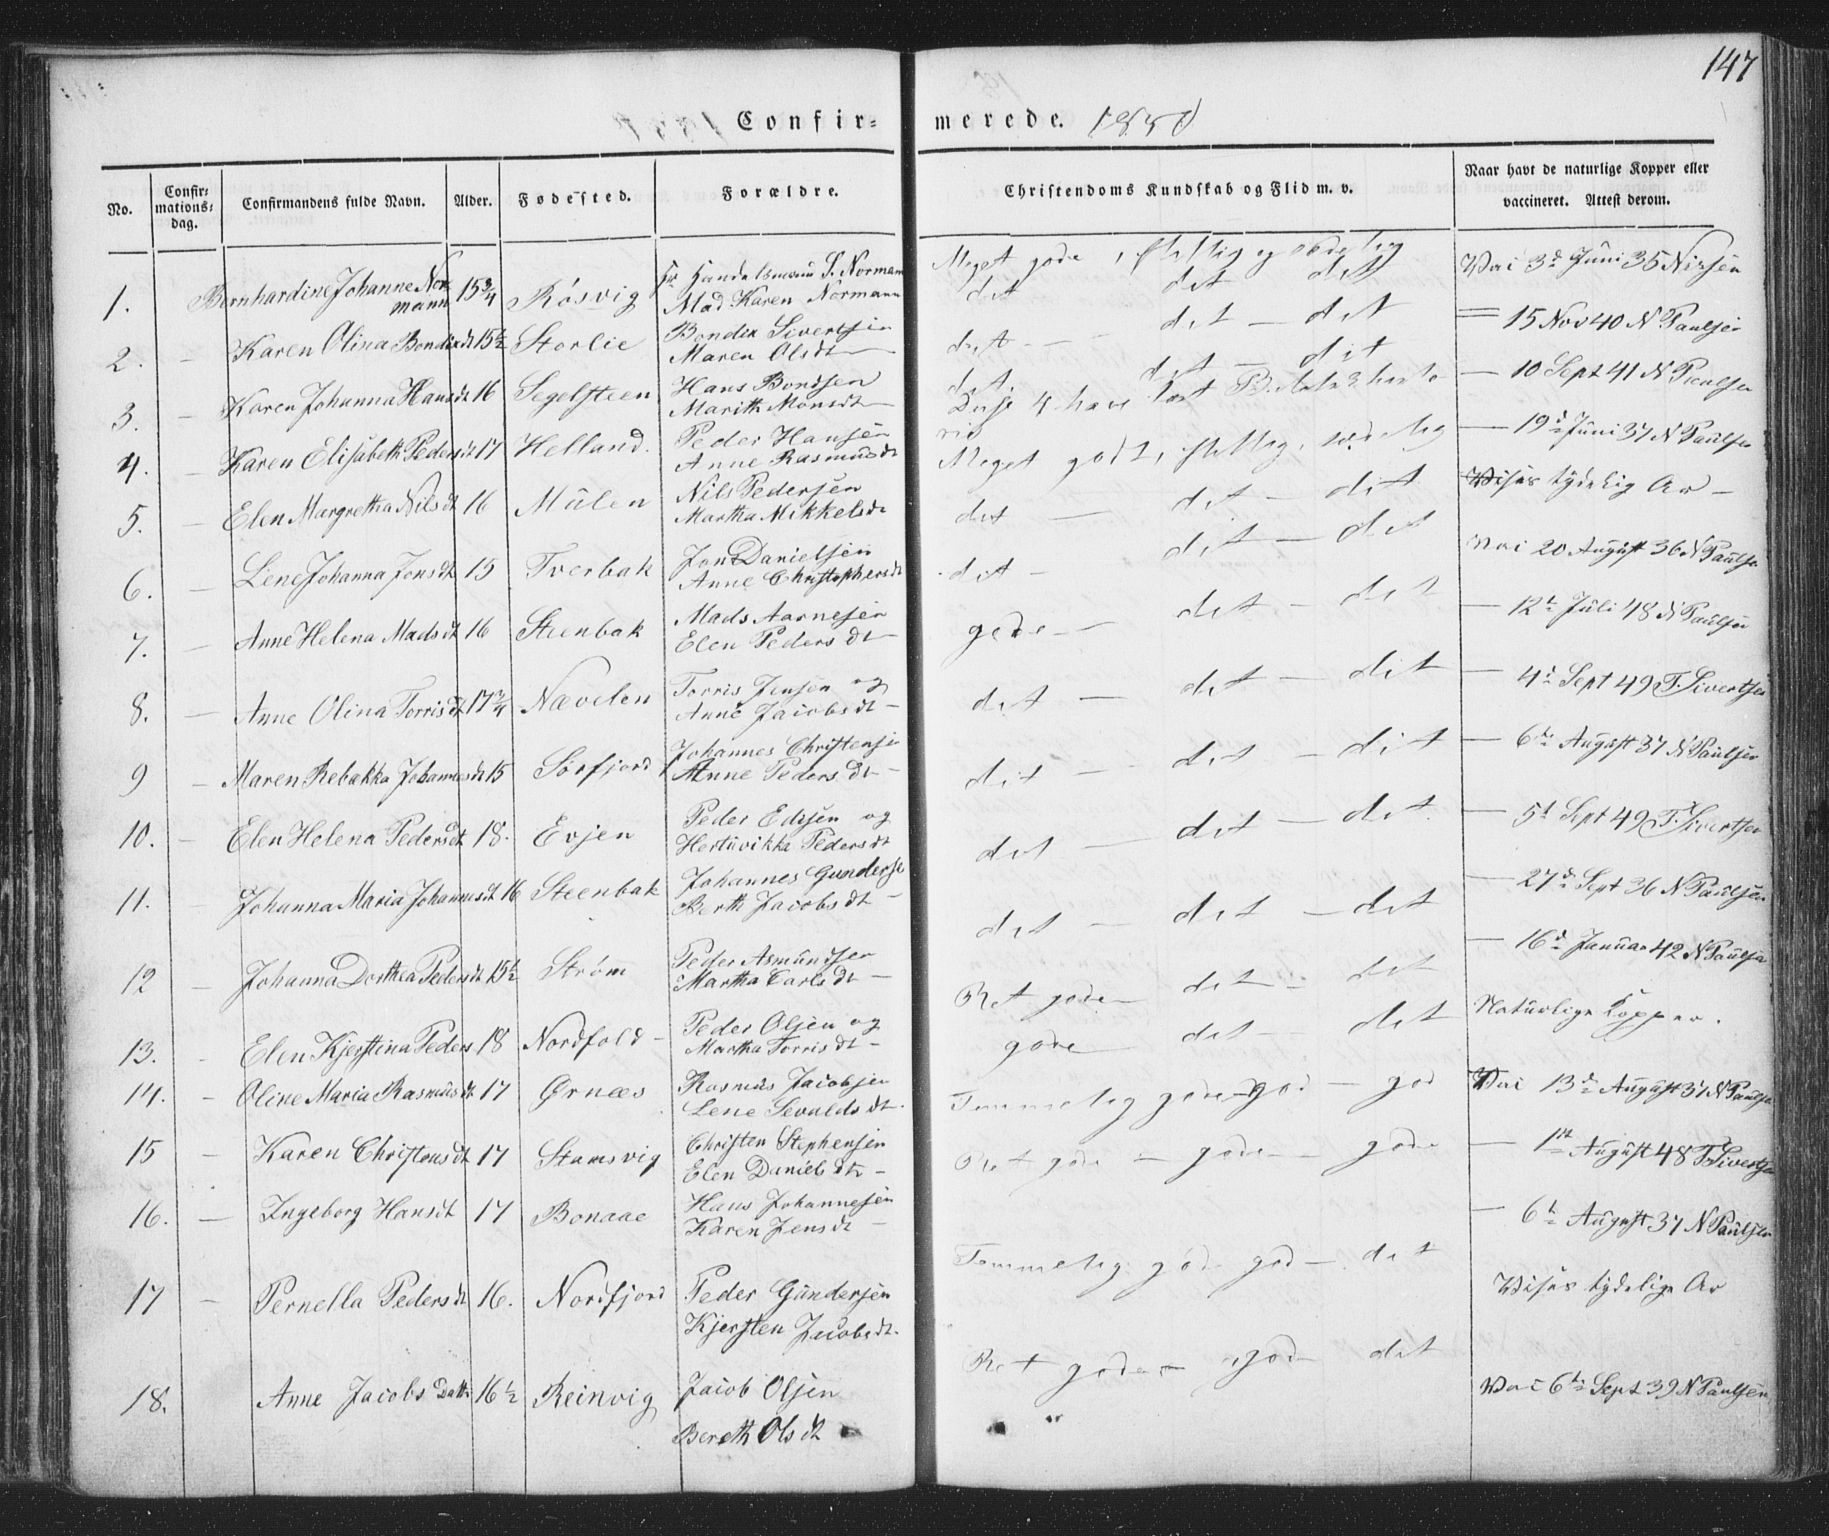 147
Confir= merede. 1850
No. Confir= mations= dag. Confirmandens fulde Navn. Alder. Fødested. Forældre. Christendoms Kundskab og Flid m. v. Naar havt de naturlige Kopper eller vaccineret. Attest derom.
1. Bernhardine Johanne Nor= mann 15 3/4 Røsvig Hr Handelsmand S. Normann Mad Karen Normann Meget gode, flittig og sædelig Vac 3d Juni 35
2. – Karen Olina Bondixdt 15 1/2 Storlie Bondix Sivertsen Maren Olsdt det det det = 15 Nov 40 N Paulsen
3. – Karen Johanna Hansdt 16 Segelsteen Hans Bondsen Marith Monsdt det – det – det – 10 Sept 41 N Paulsen
4. – Karen Elisabeth Pedersdt 17 Helland. Peder Hansen Anne Rasmusdt det. det – det – 19d Juni 37 N Paulsen
Disse 4 have læst
5. – Elen Margretha Nilsdt 16 Mülen Nils Pedersen Martha Mikkelsdt Meget godt, flittig, sædelig Vises tydelig Ar –
6. – Lene Johanna Jonsdt 15 Tverbak Jon Danielsen Anne Christophersdt det – det – det Vac 20 August 36 N Paulsen
7. – Anne Helena Madsdt 16 Steenbak Mads Aarnesen Elen Pedersdt det – det – det – 12t Juli 48 N Paulsen
8. – Anne Olina Torrisdt 17 3/4 Nævelen Torris Jensen og Anne Jacobsdt – gode – det – det – 4d Sept 49 T. Sivertsen
9 – Maren Rebakka Johannesdt 15 Sørfjord Johannes Christensen Anne Pedersdt – det – det – det – 6te August 37 N Paulsen
10. – Elen Helena Pedersdt 18. Evjen Peder Edisen og Hertuvikka Pedersdt det – det – det – 5t Sept 49 T. Sivertsen
11. – Johanna Maria Johannesdt 16 Steenbak Johannes Gunderse Berth Jacobsdt – det – det – det. – 27d Sept 36 N Paulsen
12 – Johanna Dorthea Pedersdt 15 1/2 Strøm Peder Asmundsen Martha Carlsdt – det – det – det – 16d Januar 42 N Paulsen
13. – Elen Kjerstina Peders 18 Nordfold – Peder Olsen og Martha Torrisdt – Ret gode – det – det Naturlige Kopper.
14. – Oline Maria Rasmusdt 17 Ørnæs Rasmus Jacobsen Lene Sevaldsdt. gode det – det Vac 13d August 37 N Paulsen
15 – Karen Christensdt 17 Stamsvig Christen Stephensen Elen Danielsdt – Temmelig gode – god – god – 1st August 48 T Sivertsen
16. – Ingeborg Hansdt 17 Bonaae Hans Johannesen Karen Jensdt – Ret gode – gode – gode – 6t August 37 N Paulsen
17 – Pernella Pedersdt 16. Nordfjord Peder Gundersen Kjersten Jacobsdt. Temmelig god god – det Vises tydelige Ar
18. Anne Jacobs Datt 16 1/2 Reinvig Jacob Olsen Bereth Olsdt Ret gode – god – det Vac 6te Sept 39 N Paulsen